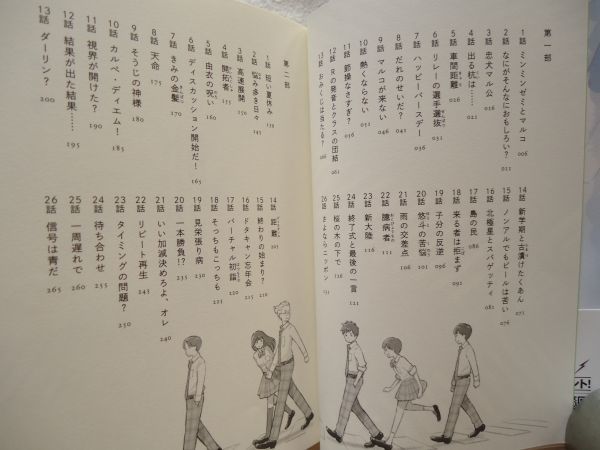 第一部
1話 ミンミンゼミとマルコ 006
2話 なにがそんなにおもしろい？ 011
3話 忠犬マル公 016
4話 出る杭は…… 021
5話 車間距離 026
6話 リレーの選手選抜 031
7話 ハッピーバースデー！ 036
8話 だれのせいだ？ 041
9話 マルコが来ない 046
10話 熱くならない 051
11話 節操なさすぎ？ 056
12話 Rの発音とクラスの団結 061
13話 おみくじは当たる？ 066
14話 新学期と古漬けたくあん 071
15話 ノンアルでもビールは苦い 076
16話 北極星とスパゲッティ 081
17話 島の民 086
18話 来る者は拒まず 091
19話 子分の反逆 096
20話 悠斗の苦悩 101
21話 雨の交差点 106
22話 臆病者 111
23話 新大陸 116
24話 終了式と最後の一言 121
25話 桜の木の下で 126
26話 さよならニッポン
第二部
1話 短い夏休み
2話 悩み多き日々 145
3話 高速展開 150
4話 開拓者 155
5話 由衣の呪い 160
6話 ディスカッション開始だ！ 165
7話 きみの金髪 170
8話 天命 175
9話 そうじの神様 180
10話 カルペ・ディエム！ 185
11話 視界が開けた？ 190
12話 結果が出た結果…… 195
13話 ダーリン？ 200
14話 距離 205
15話 終わりの始まり？ 210
16話 ドタキャン忘年会 215
17話 バーチャル初詣 220
18話 そっちもこっちも 225
19話 見栄張り病 230
20話 一本勝負！？ 235
21話 いい加減決めろよ、オレ 240
22話 リピート再生 245
23話 タイミングの問題？ 250
24話 待ち合わせ 255
25話 一周遅れで 260
26話 信号は青だ 265